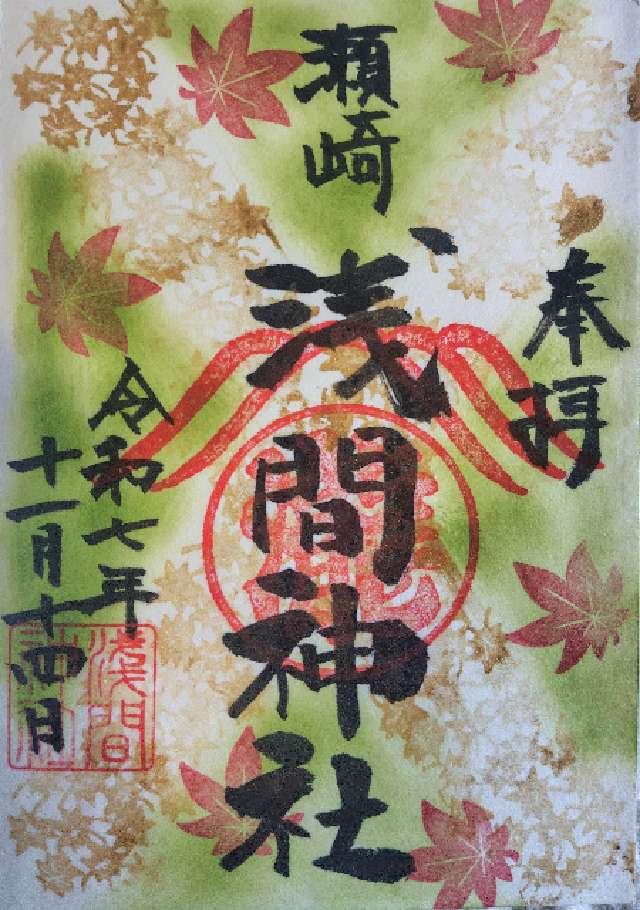 奉拝
瀬崎
浅間神社
令和七年
十一月十四日
淺間
神社